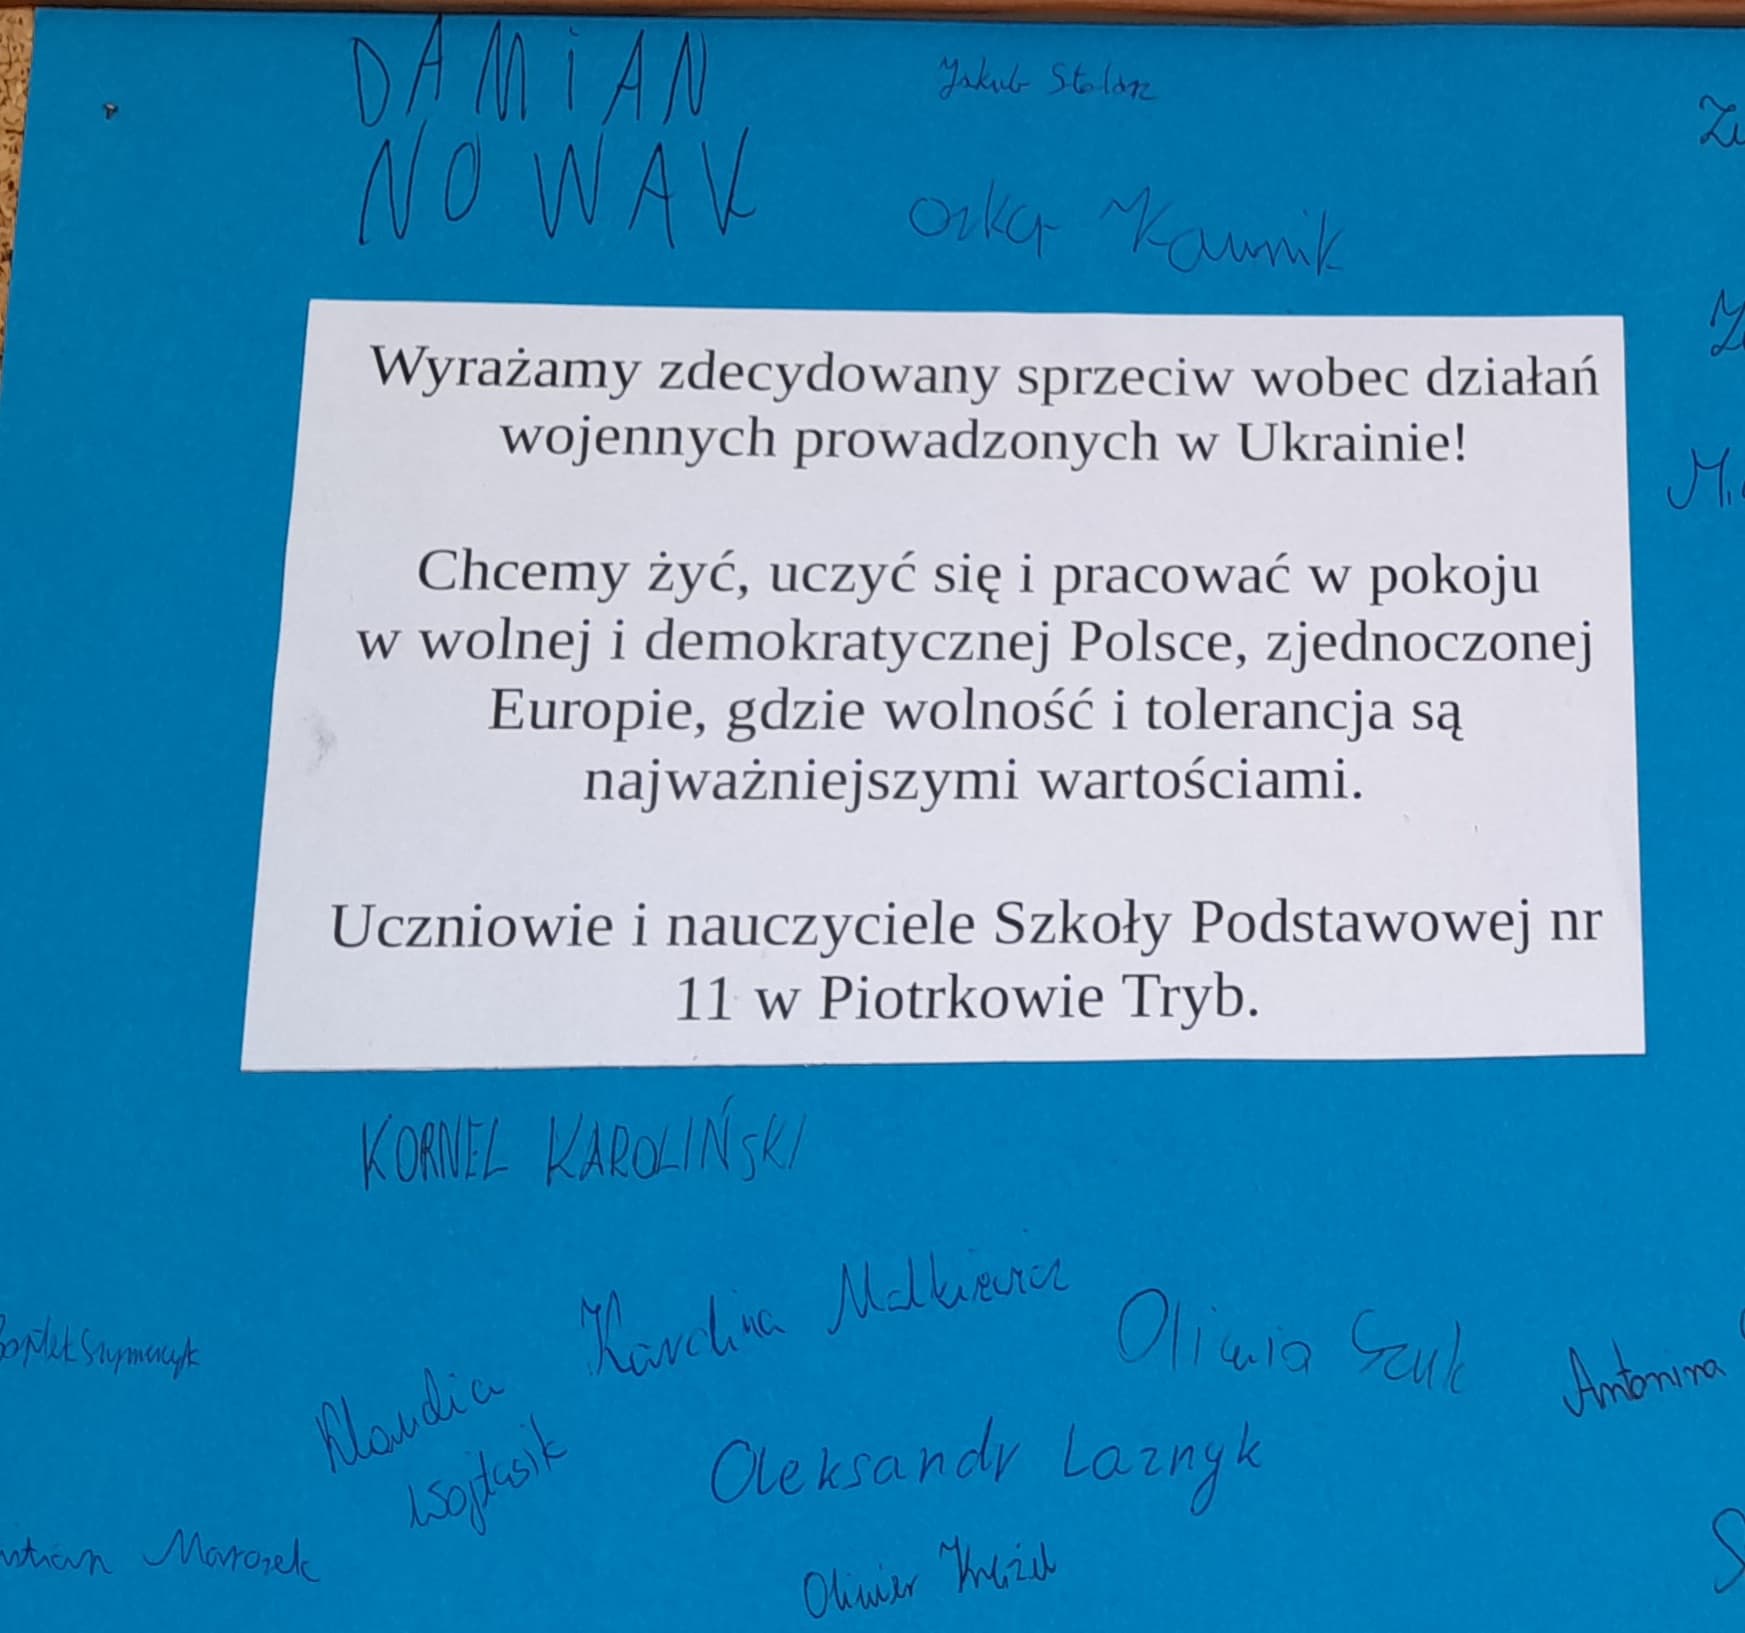 DAMiAN
NOWAK
Jakub Stolarz
Wyrażamy zdecydowany sprzeciw wobec działań
wojennych prowadzonych w Ukrainie!
Chcemy żyć, uczyć się i pracować w pokoju
w wolnej i demokratycznej Polsce, zjednoczonej
Europie, gdzie wolność i tolerancja są
najważniejszymi wartościami.
Uczniowie i nauczyciele Szkoły Podstawowej nr
11 w Piotrkowie Tryb.
KORNEL KAROLIŃSKI
Karolina Malkiewicz
Oliwia Szuk
Antonina
Klaudia
Wojtasik
Oleksandr Laznyk
Marozek
Oliwier